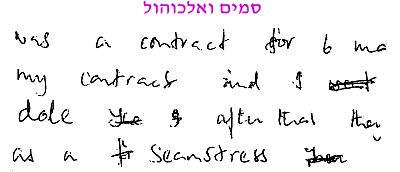 סמים ואלכוהול
was a contract for 6 mo
my contract and I
dole after that the
as a seamstress